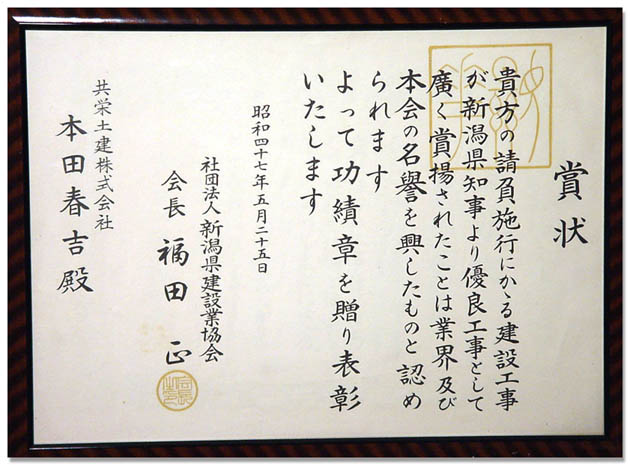 賞状
貴方の請負施行にかゝる建設工事
が新潟県知事より優良工事として
廣く賞揚されたことは業界及び
本会の名譽を興したものと認め
られます
よって功績章を贈り表彰
いたします
昭和四十七年五月二十五日
社団法人新潟県建設業協会
会長 福田 正
共栄土建株式会社
本田春吉殿